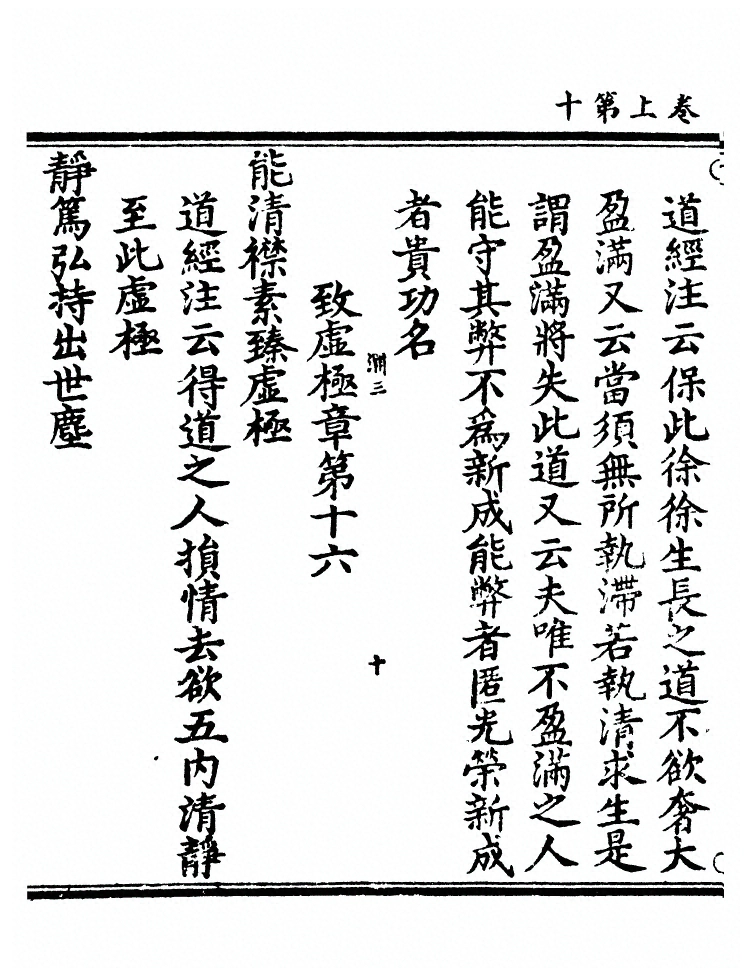 卷上第十
道經注云保此徐徐生長之道不欲奢大
盈滿又云當須無所執滯若執清求生是
謂盈滿將失此道又云夫唯不盈滿之人
能守其弊不為新成能弊者匿光榮新成
者貴功名
十
致虛極章第十六
能清襟素臻虛極
道經注云得道之人損情去欲五內清靜
至此虛極
靜篤弘持出世塵